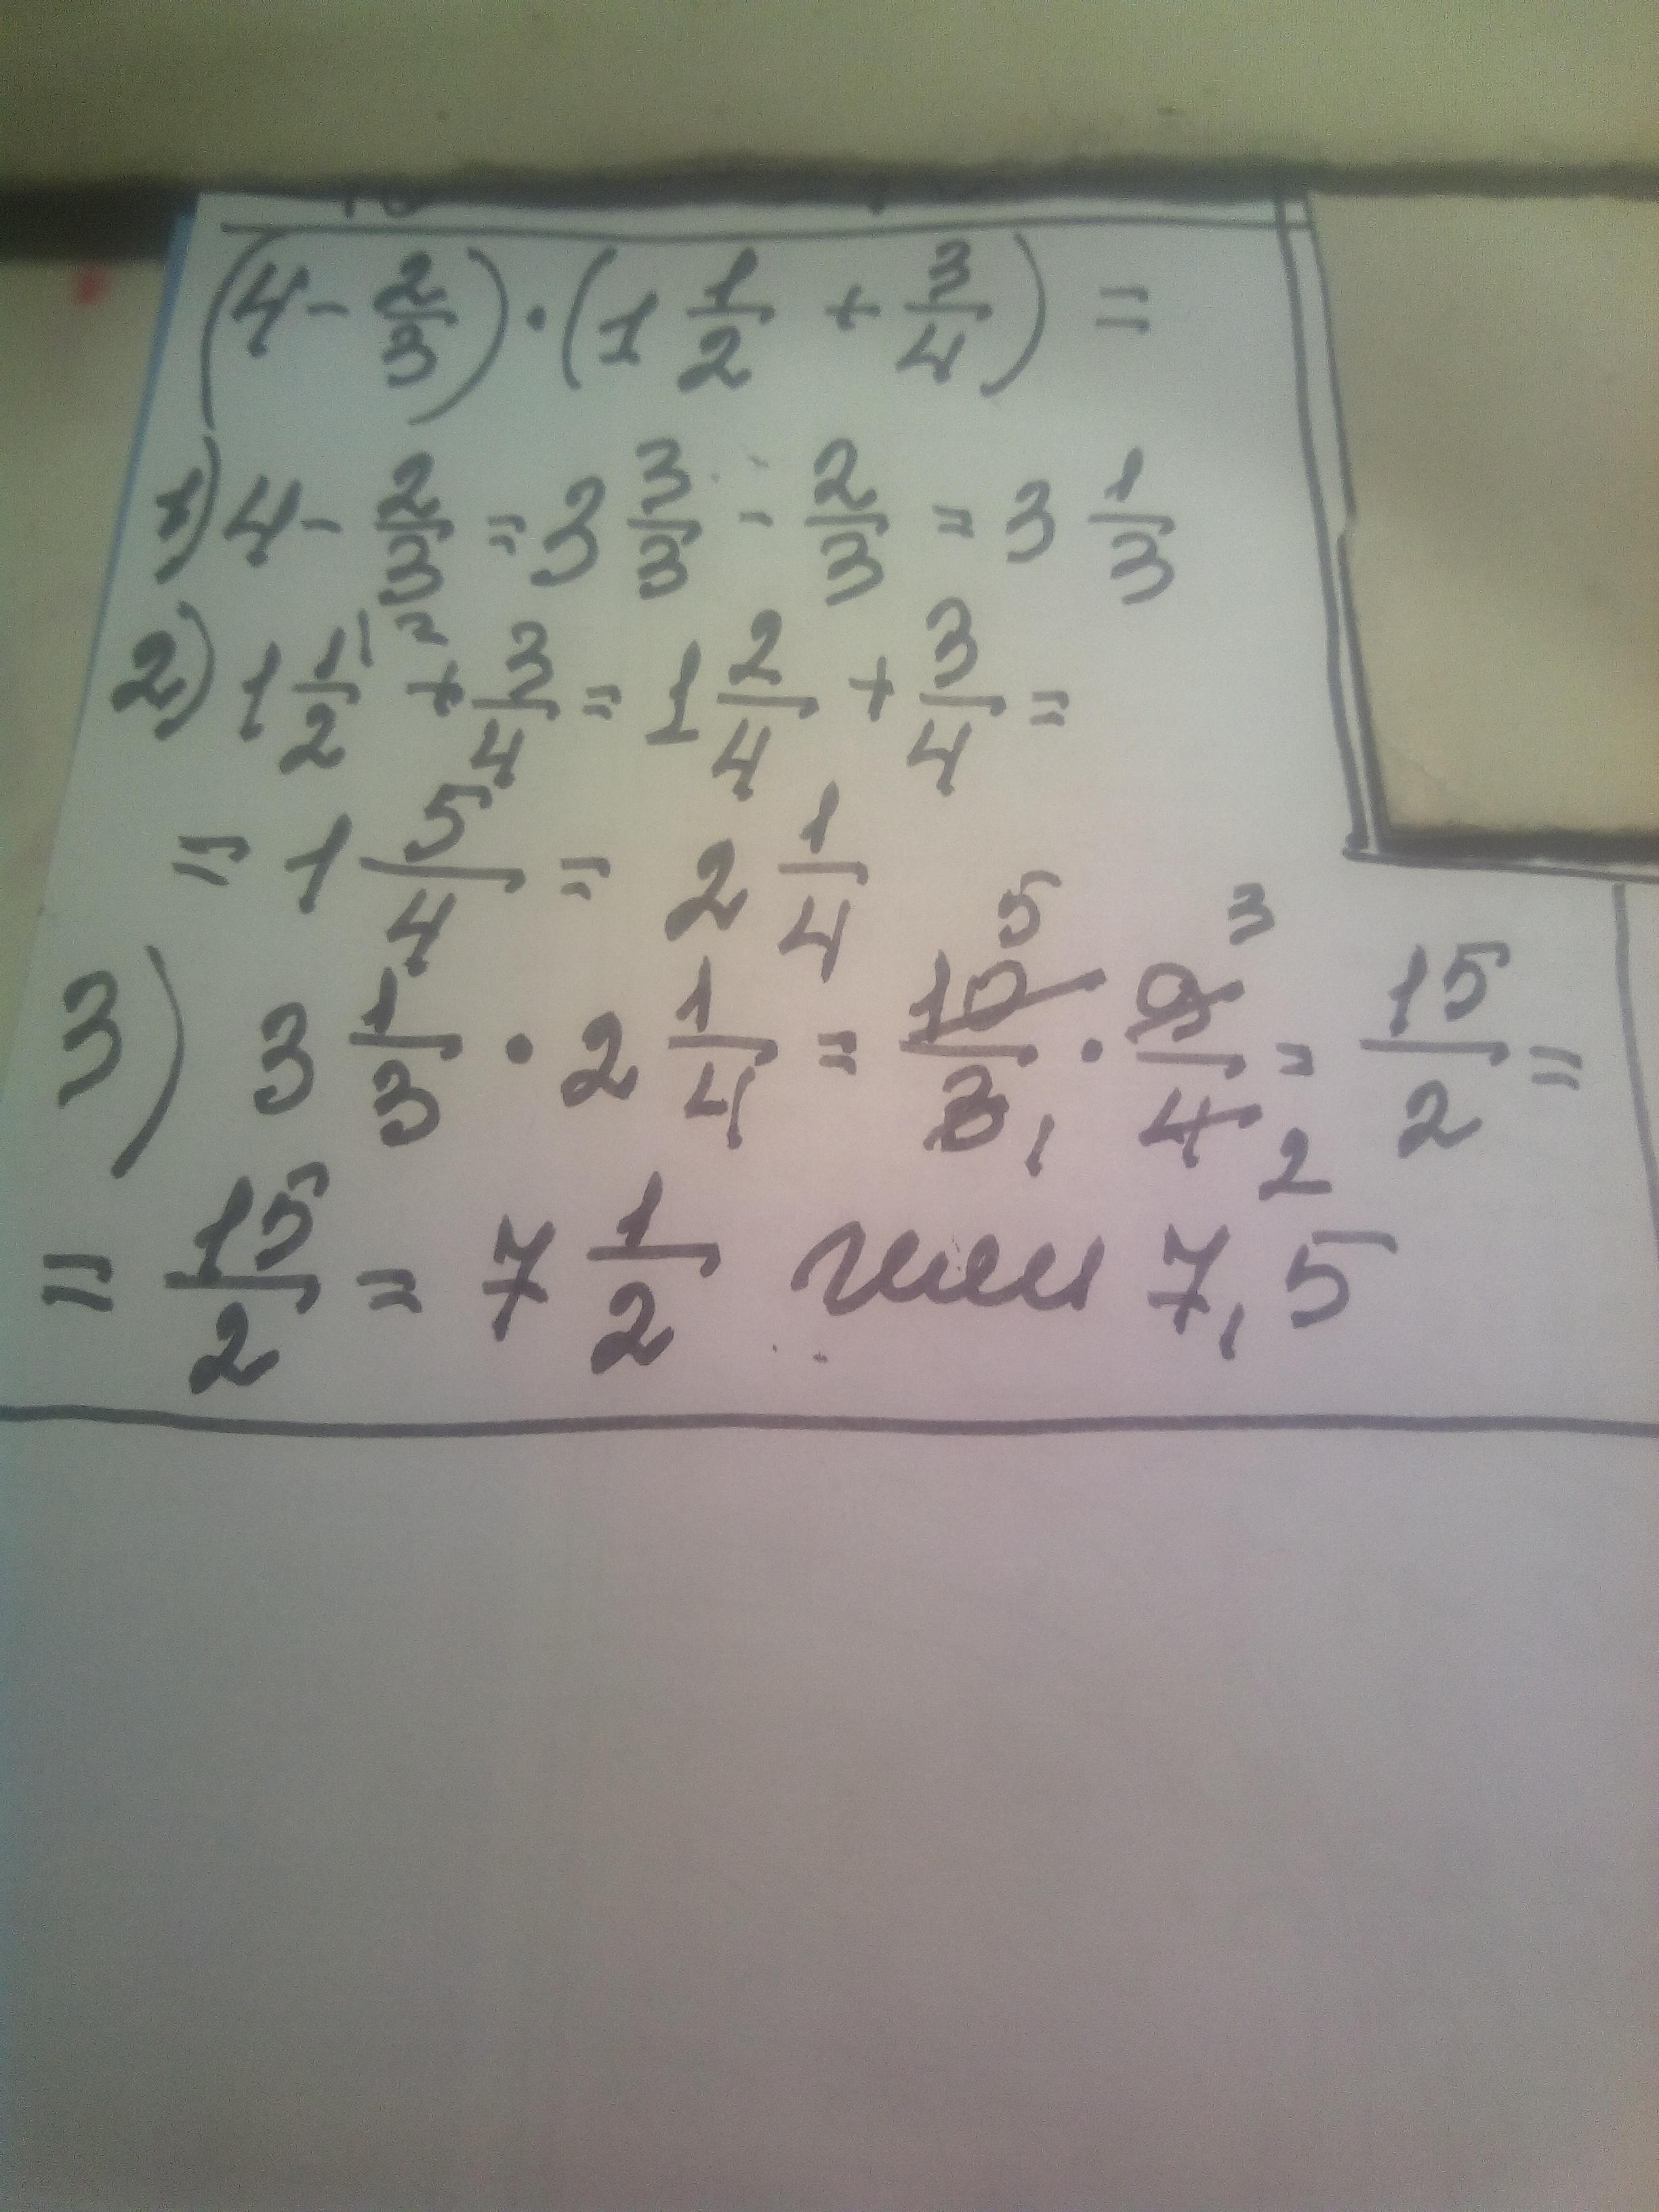 (4 - 2/3) · (1 1/2 + 3/4) =
1) 4 - 2/3 = 3 3/3 - 2/3 = 3 1/3
2) 1 1/2 |2 + 3/4 = 1 2/4 + 3/4 =
= 1 5/4 = 2 1/4
5 3
3) 3 1/3 · 2 1/4 = 10/3 · 9/4 = 15/2 =
1 2
= 15/2 = 7 1/2 или 7,5